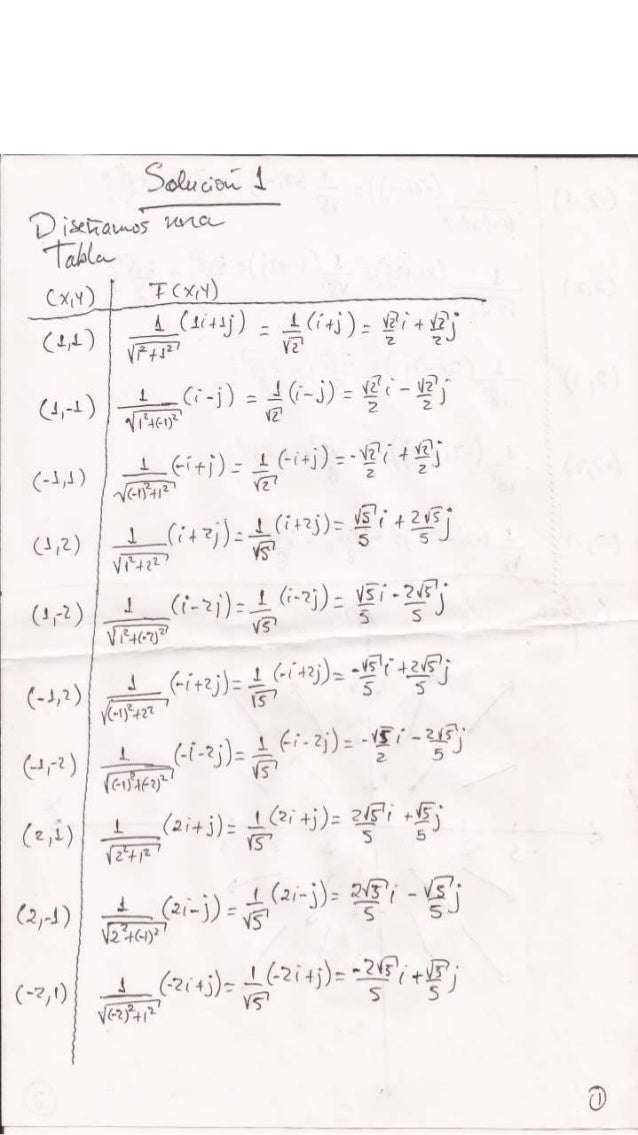 Solución 1
Diseñamos una
Tabla
(x,y) F(x,y)
(1,1) 1/√(1²+1²) (1i+1j) = 1/√2 (i+j) = √2/2 i + √2/2 j
(1,-1) 1/√(1²+(-1)²) (i-j) = 1/√2 (i-j) = √2/2 i - √2/2 j
(-1,1) 1/√((-1)²+1²) (-i+j) = 1/√2 (-i+j) = -√2/2 i + √2/2 j
(1,2) 1/√(1²+2²) (i+2j) = 1/√5 (i+2j) = √5/5 i + 2√5/5 j
(1,-2) 1/√(1²+(-2)²) (i-2j) = 1/√5 (i-2j) = √5/5 i - 2√5/5 j
(-1,2) 1/√((-1)²+2²) (-i+2j) = 1/√5 (-i+2j) = -√5/5 i + 2√5/5 j
(-1,-2) 1/√((-1)²+(-2)²) (-i-2j) = 1/√5 (-i-2j) = -√5/2 i - 2√5/5 j
(2,1) 1/√(2²+1²) (2i+j) = 1/√5 (2i+j) = 2√5/5 i + √5/5 j
(2,-1) 1/√(2²+(-1)²) (2i-j) = 1/√5 (2i-j) = 2√5/5 i - √5/5 j
(-2,1) 1/√((-2)²+1²) (-2i+j) = 1/√5 (-2i+j) = -2√5/5 i + √5/5 j
1